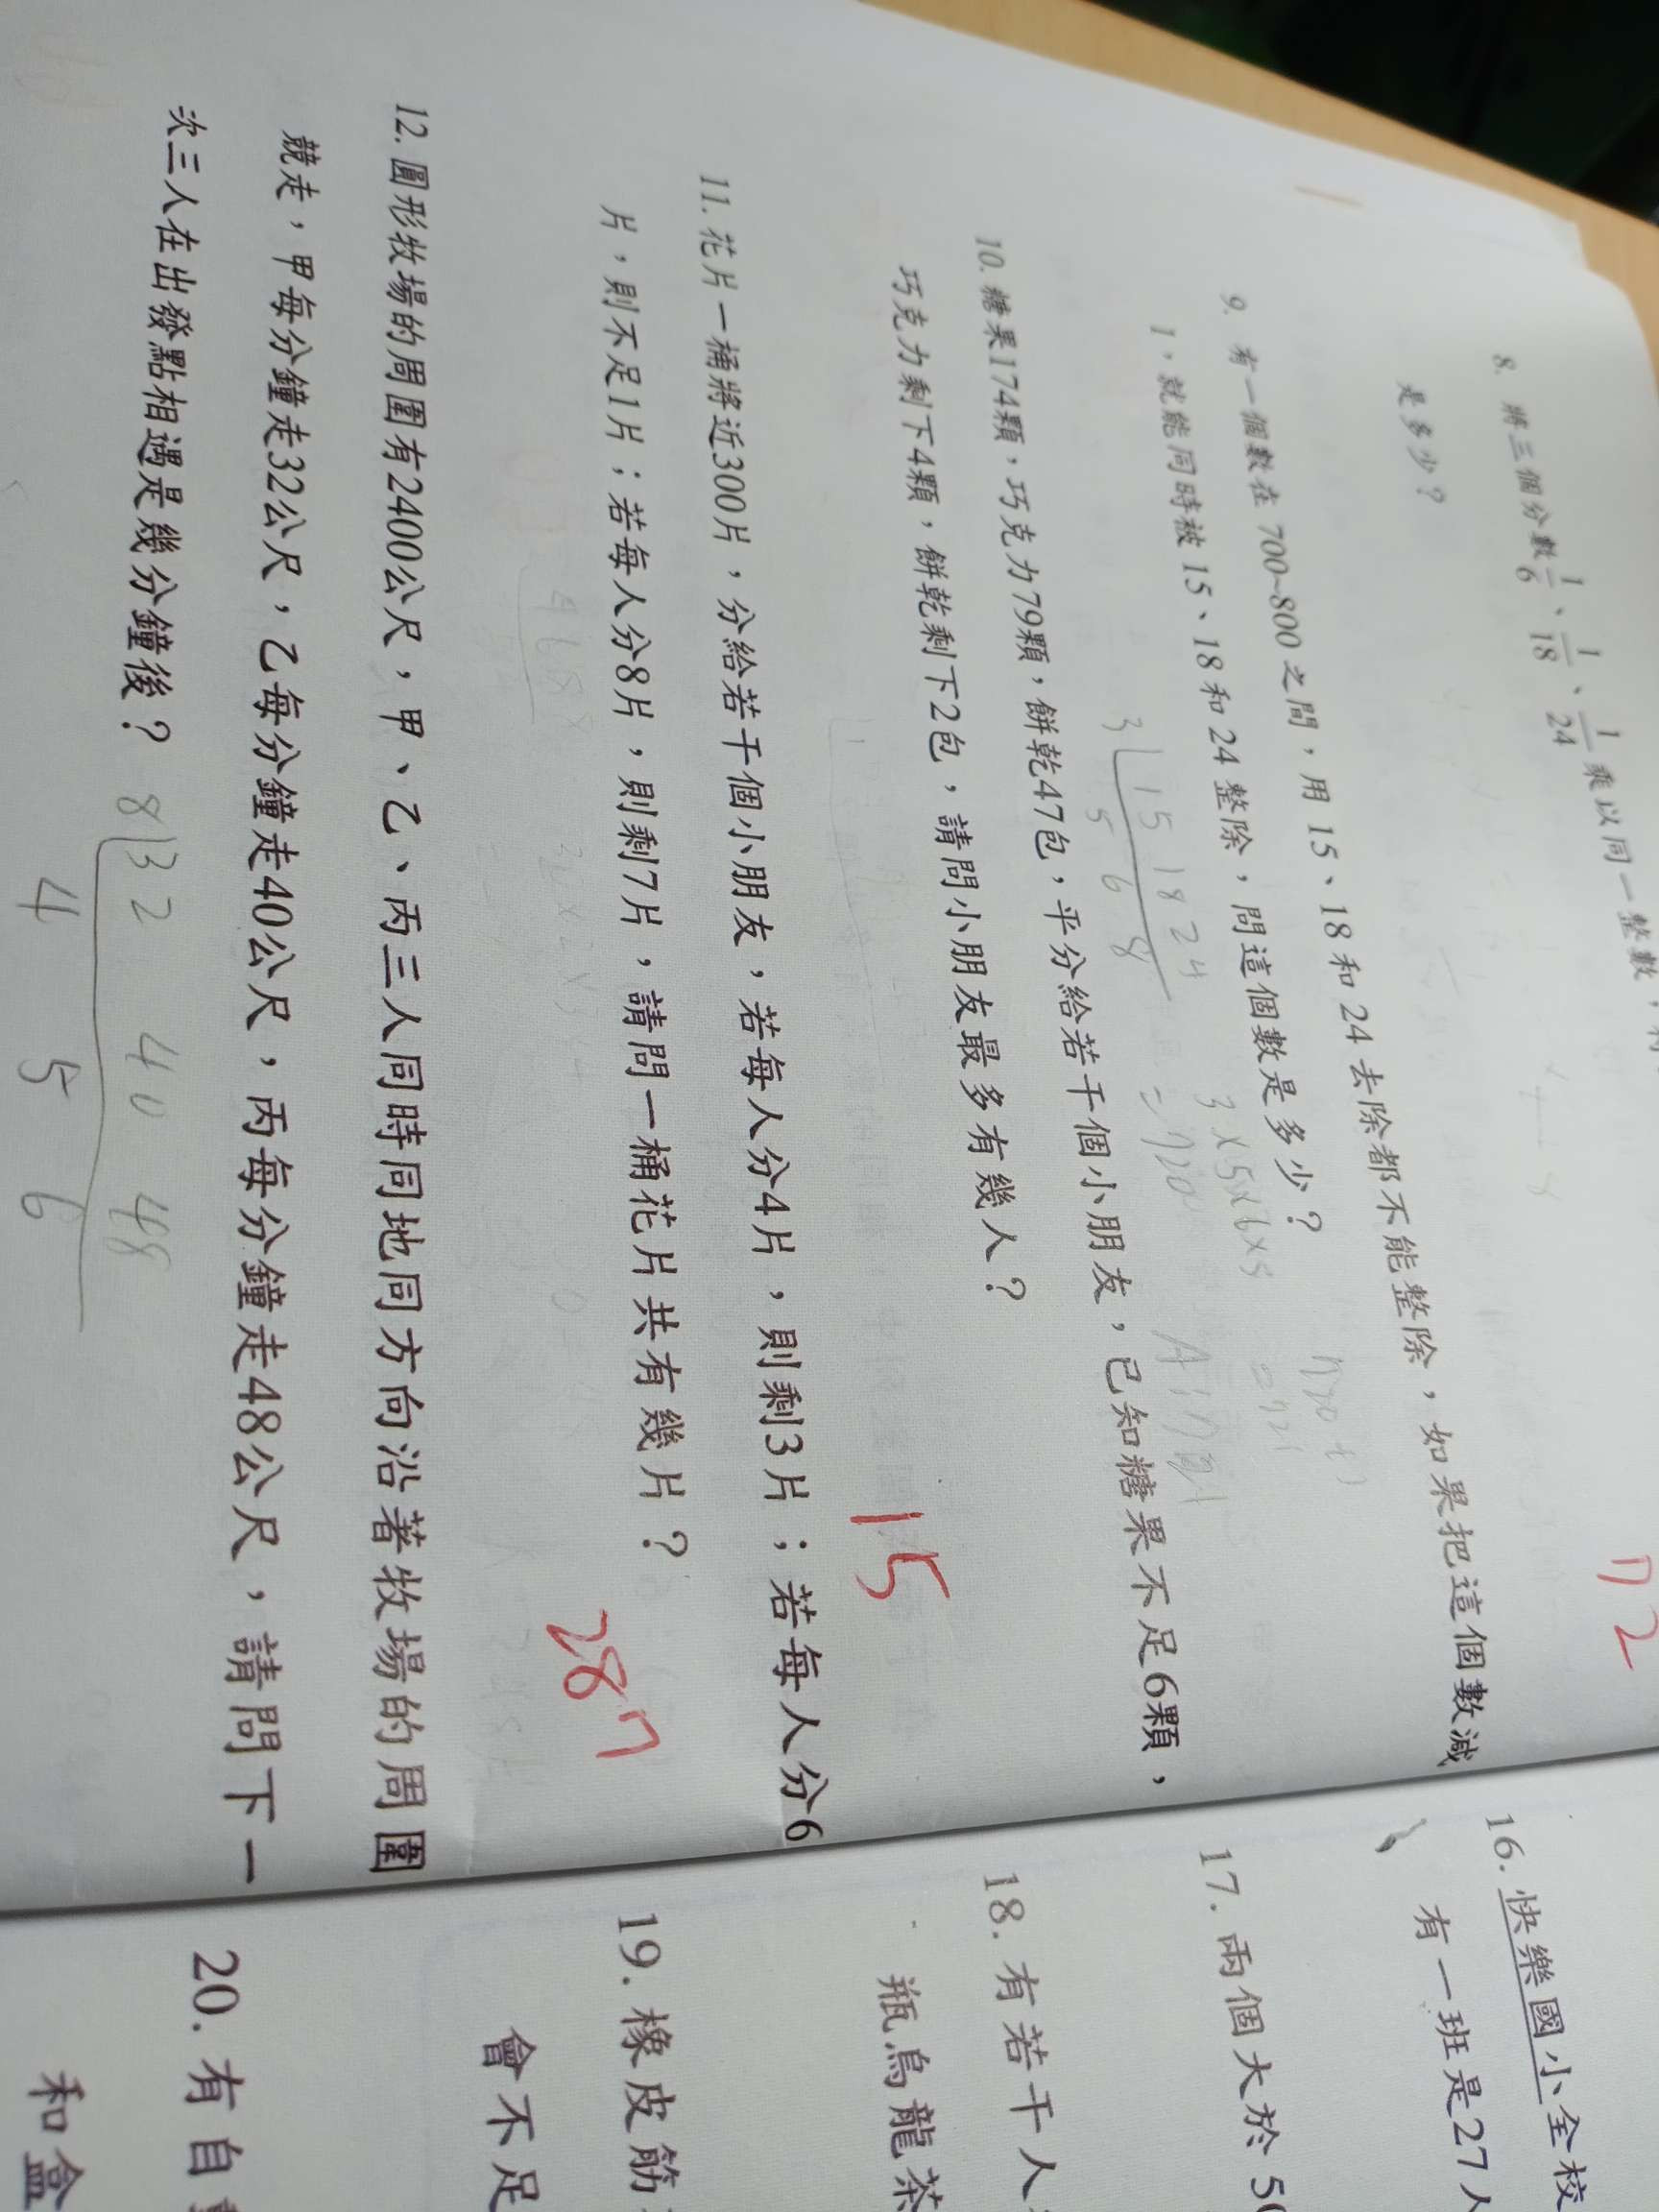 8. 將三個分數 1/6、1/18、1/24 乘以同一整數，
是多少？
72
9. 有一個數在 700~800 之間，用 15、18 和 24 去除都不能整除，如果把這個數減
1，就能同時被 15、18 和 24 整除，問這個數是多少？
720+1
=721
3 15 18 24
5 6 8
=720
10. 糖果174顆，巧克力79顆，餅乾47包，平分給若干個小朋友，已知糖果不足6顆，
巧克力剩下4顆，餅乾剩下2包，請問小朋友最多有幾人？
15
11. 花片一桶將近300片，分給若干個小朋友，若每人分4片，則剩3片；若每人分6
片，則不足1片；若每人分8片，則剩7片，請問一桶花片共有幾片？
287
12. 圓形牧場的周圍有2400公尺，甲、乙、丙三人同時同地同方向沿著牧場的周圍
競走，甲每分鐘走32公尺，乙每分鐘走40公尺，丙每分鐘走48公尺，請問下一
次三人在出發點相遇是幾分鐘後？
8 32 40 48
4 5 6
16. 快樂國小全校
有一班是27人
17. 兩個大於 50
18. 有若干人
瓶烏龍茶
19. 橡皮筋
會不足
20. 有自
和盒